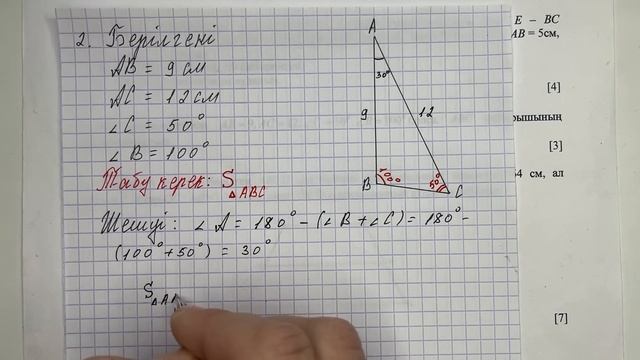 2. Берілгені
AB = 9 см
AC = 12 см
∠C = 50°
∠B = 100°
Табу керек: S△ABC
Шешуі: ∠A = 180° - (∠B + ∠C) = 180° -
(100° + 50°) = 30°
S△AB
A
30°
9
12
B
100°
50°
C
E – BC
AB = 5см,
[4]
[3]
см, ал
[7]